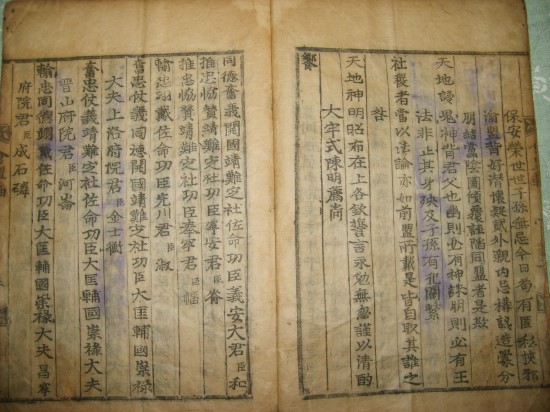 保安榮世世子孫無忘今日苟有匿挾詐邪
渝盟背好潛懷疑貳外親內忌構誤造釁分
朋結黨陰圖傾覆謀陷同盟者是欺
天地謾鬼神背君父也幽則必有神誅明則必有王
法非止其身殃及子孫有犯關繫
社稷者當以法論亦如前盟所載是皆自取其誰之
咎
天地神明昭布在上各欽誓言永勉無怠謹以清酌
大牢式陳明薦尚
饗
同德奮義開國靖難定社佐命功臣義安大君臣和
推忠協贊靖難定社功臣寧安君臣
推忠協贊靖難定社功臣完寧君臣
輸忠翊戴佐命功臣完川君臣淑
奮忠仗義同德開國靖難定社功臣大匡輔國崇祿
大夫上洛府院君臣金士衡
奮忠仗義靖難定社佐命功臣大匡輔國崇祿大夫
晋山府院君臣河崙
輸忠同德翊戴佐命功臣大匡輔國崇祿大夫昌寧
府院君臣成石璘